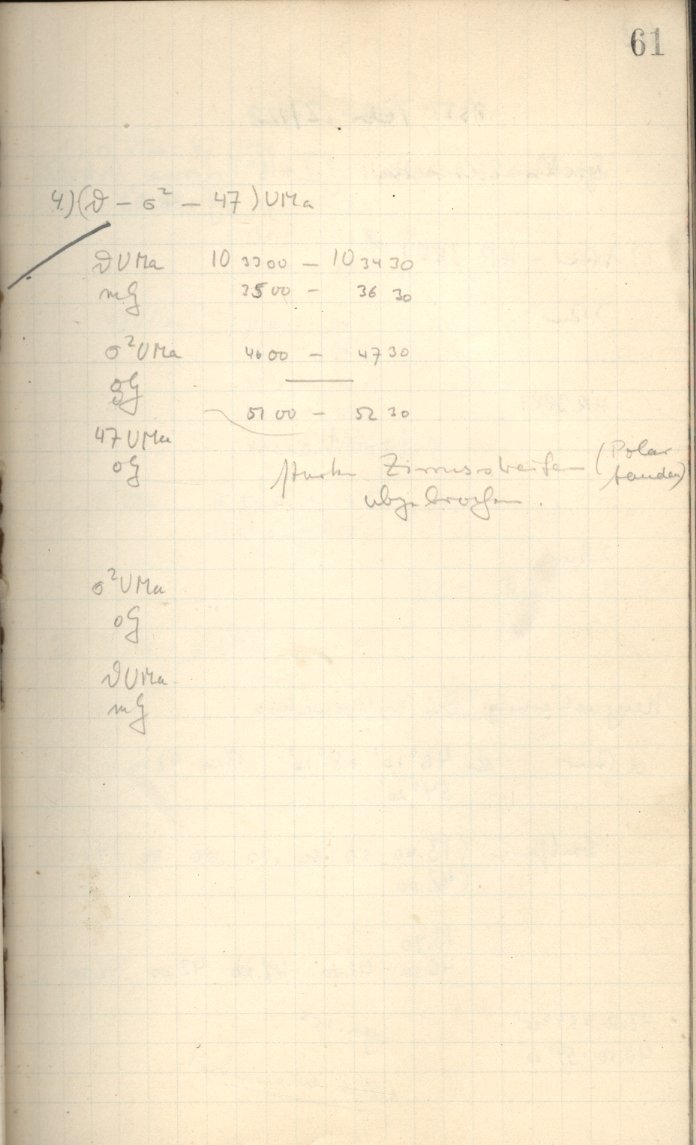 61
4.) (ϑ – σ² – 47) UMa
ϑ UMa 10 33 00 – 10 34 30
mG 35 00 – 36 30
σ² UMa 46 00 – 47 30
oG
51 00 – 52 30
47 UMa
oG starke Zirrusstreifen (Polar
banden)
abgebrochen.
σ² UMa
oG
ϑ UMa
mG